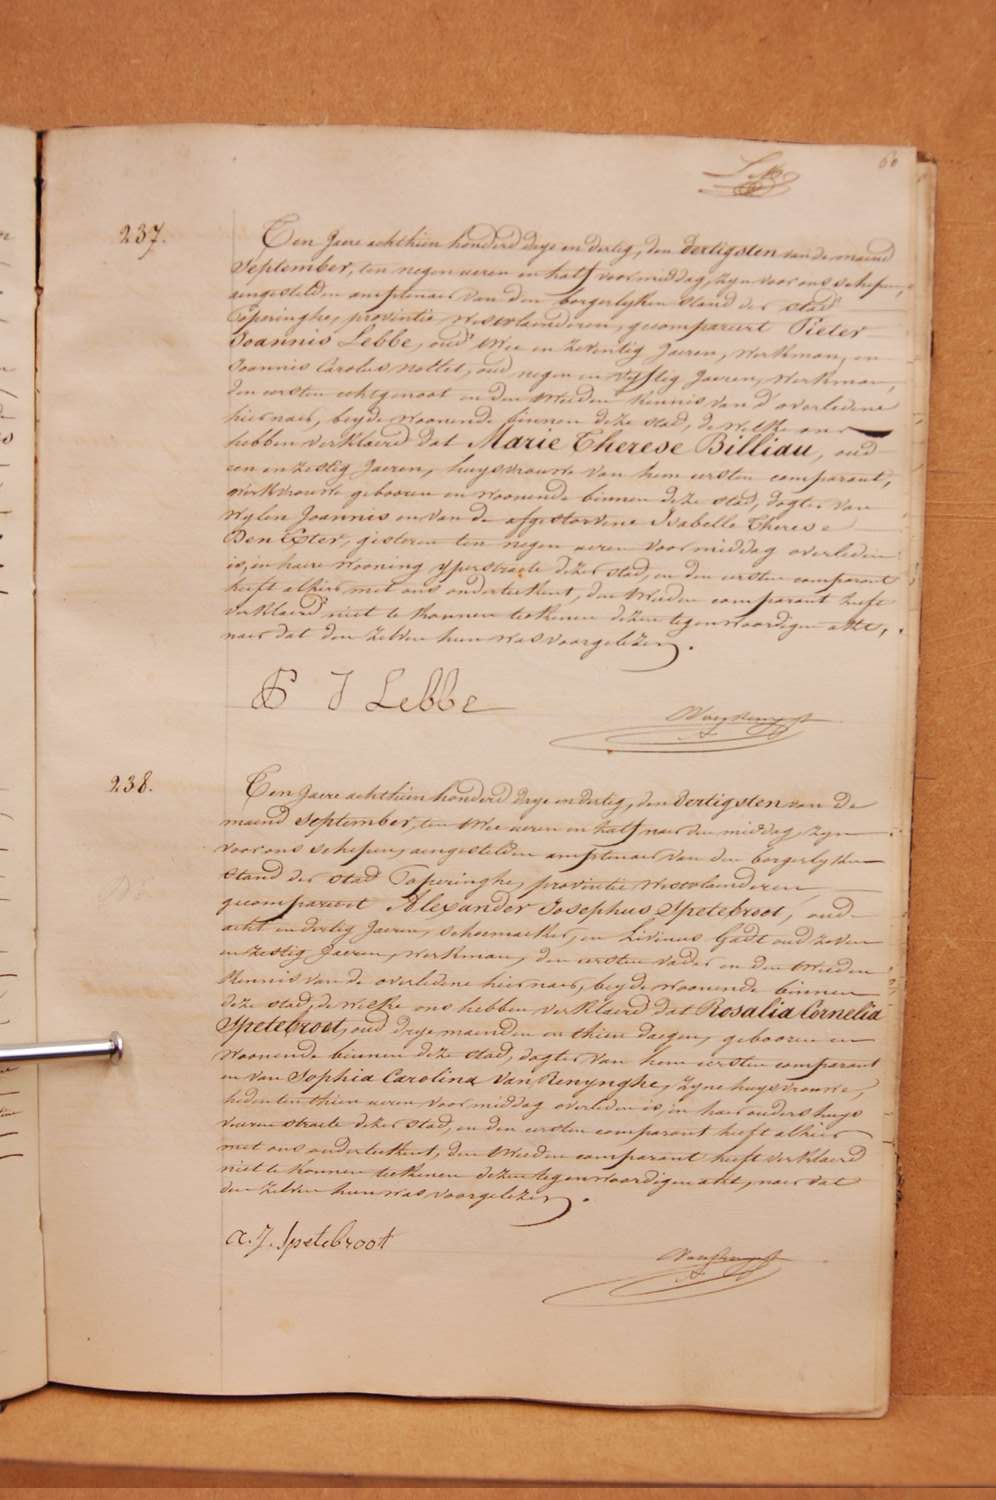 60
237.
Ten Jaere achthien honderd drye en dertig, den dertigsten van de maend
September, ten negen ueren en half voormiddag, zyn voor ons schepen,
aengestelden amptenaer van den borgerlyken stand der stad
Poperinghe, provintie Westvlaenderen, gecompareert Pieter
Joannis Lebbe, oud twee en zeventig Jaeren, werkman, en
Joannis Carolus Nollet, oud negen en vyftig Jaeren, werkman,
den eersten echtgenoot en den tweeden kennis van d'overledene
hiernaer, beyde woonende binnen deze stad, de welke ons
hebben verklaerd dat Marie Therese Billiau, oud
een en zestig Jaeren, huysvrouwe van hem eersten comparant,
werkvrouwe gebooren en woonende binnen deze stad, dogter van
wylen Joannis en van de afgestorvene Isabelle Therese
Den Exter, gisteren ten negen ueren voormiddag overleden
is, in haere wooning yperstraete dezer stad, en den eersten comparant
heeft alhier met ons onderteekent, den tweeden comparant heeft
verklaerd niet te konnen teekenen dezen tegenwoordigen akte,
naer dat den zelven hun was voorgelezen.
P J Lebbe
238.
Ten Jaere achthien honderd drye en dertig, den dertigsten van de
maend September, ten twee ueren en half naer den middag, zyn
voor ons schepen, aengestelden amptenaer van den borgerlyken
stand der stad Poperinghe, provintie Westvlaenderen
gecompareert Alexander Josephus Spetebroot, oud
acht en dertig Jaeren, schoemaeker, en Livinus Gadt oud zeven
en zestig Jaeren, werkman, den eersten vader en den tweeden
kennis van de overledene hiernaer, beyde woonende binnen
deze stad, de welke ons hebben verklaerd dat Rosalia Cornelia
Spetebroot, oud drye maenden en thien daegen, gebooren en
woonende binnen deze stad, dogter van hem eersten comparant
en van Sophia Carolina Van Renynghe, zyne huysvrouwe,
heden ten thien ueren voormiddag overleden is, in haer ouders huys
veurne straete dezer stad, en den eersten comparant heeft alhier
met ons onderteekent, den tweeden comparant heeft verklaerd
niet te konnen teekenen dezen tegenwoordigen akt, naer dat
den zelven hun was voorgelezen.
a. J. Spetebroot